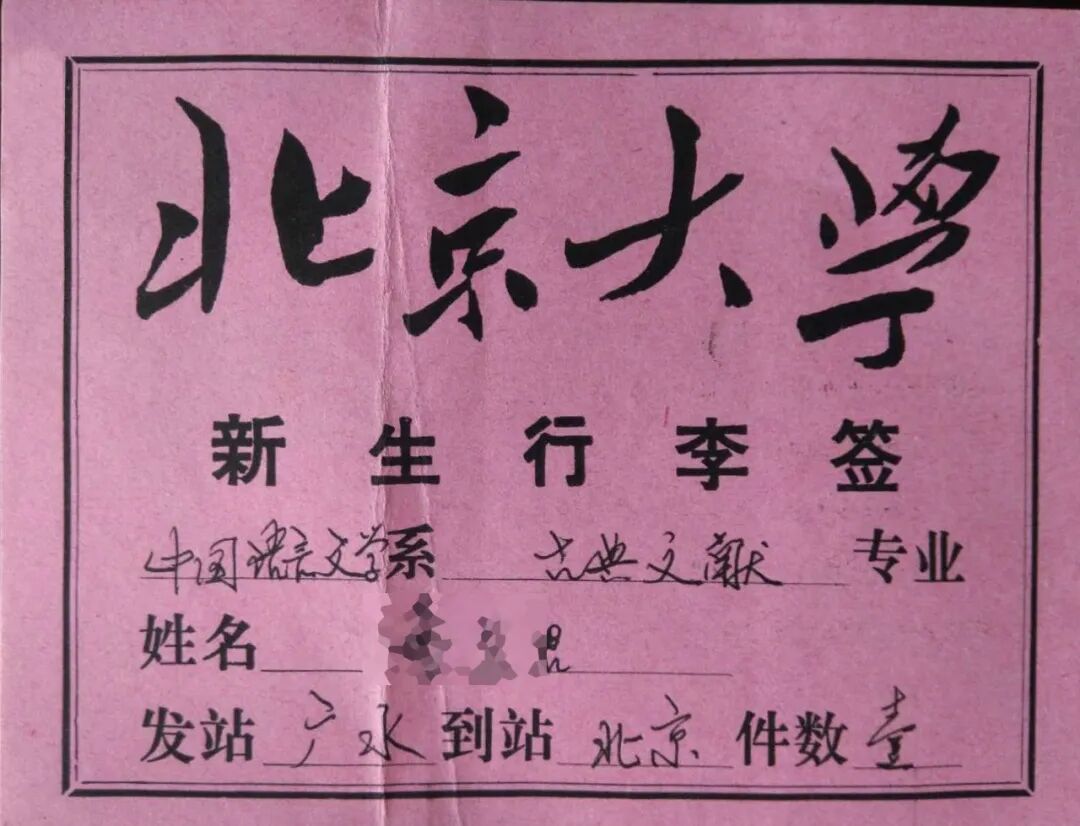 北京大学
新生行李签
中国语言文学系 古典文献 专业
姓名
发站 广水 到站 北京 件数 壹